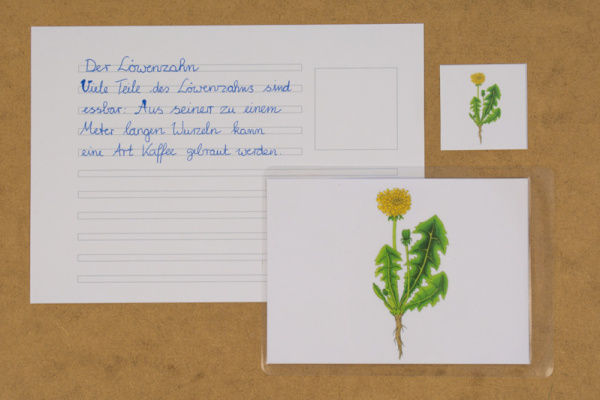 Der Löwenzahn
Viele Teile des Löwenzahns sind
essbar: Aus seiner zu einem
Meter langen Wurzeln kann
eine Art Kaffee gebraut werden.